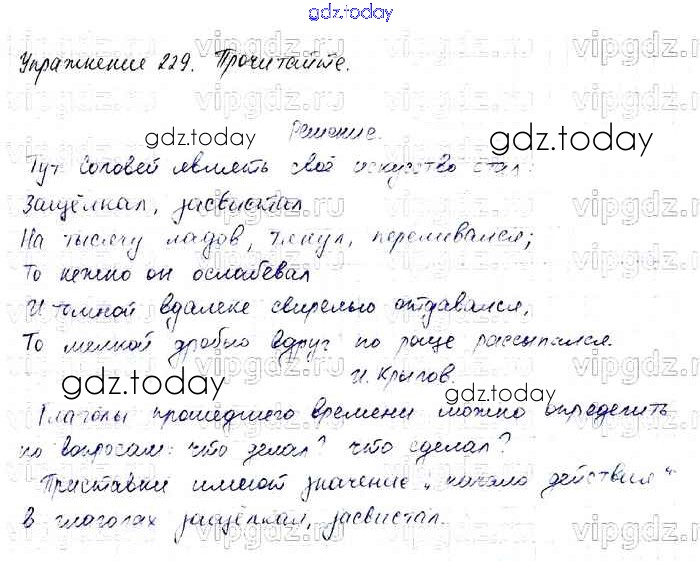 gdz.today
Упражнение 229. Прочитайте.
Решение.
gdz.today gdz.today
Тут Соловей являть своё искусство стал:
Защёлкал, засвистал
На тысячу ладов, тянул, переливался;
То нежно он ослабевал
И томной вдалеке свирелью отдавался,
То мелкой дробью вдруг по роще рассыпался.
И. Крылов.
gdz.today gdz.today
Глаголы прошедшего времени можно определить
по вопросам: что делал? что сделал?
Приставки имеют значение „начало действия"
в глаголах защёлкал, засвистал.